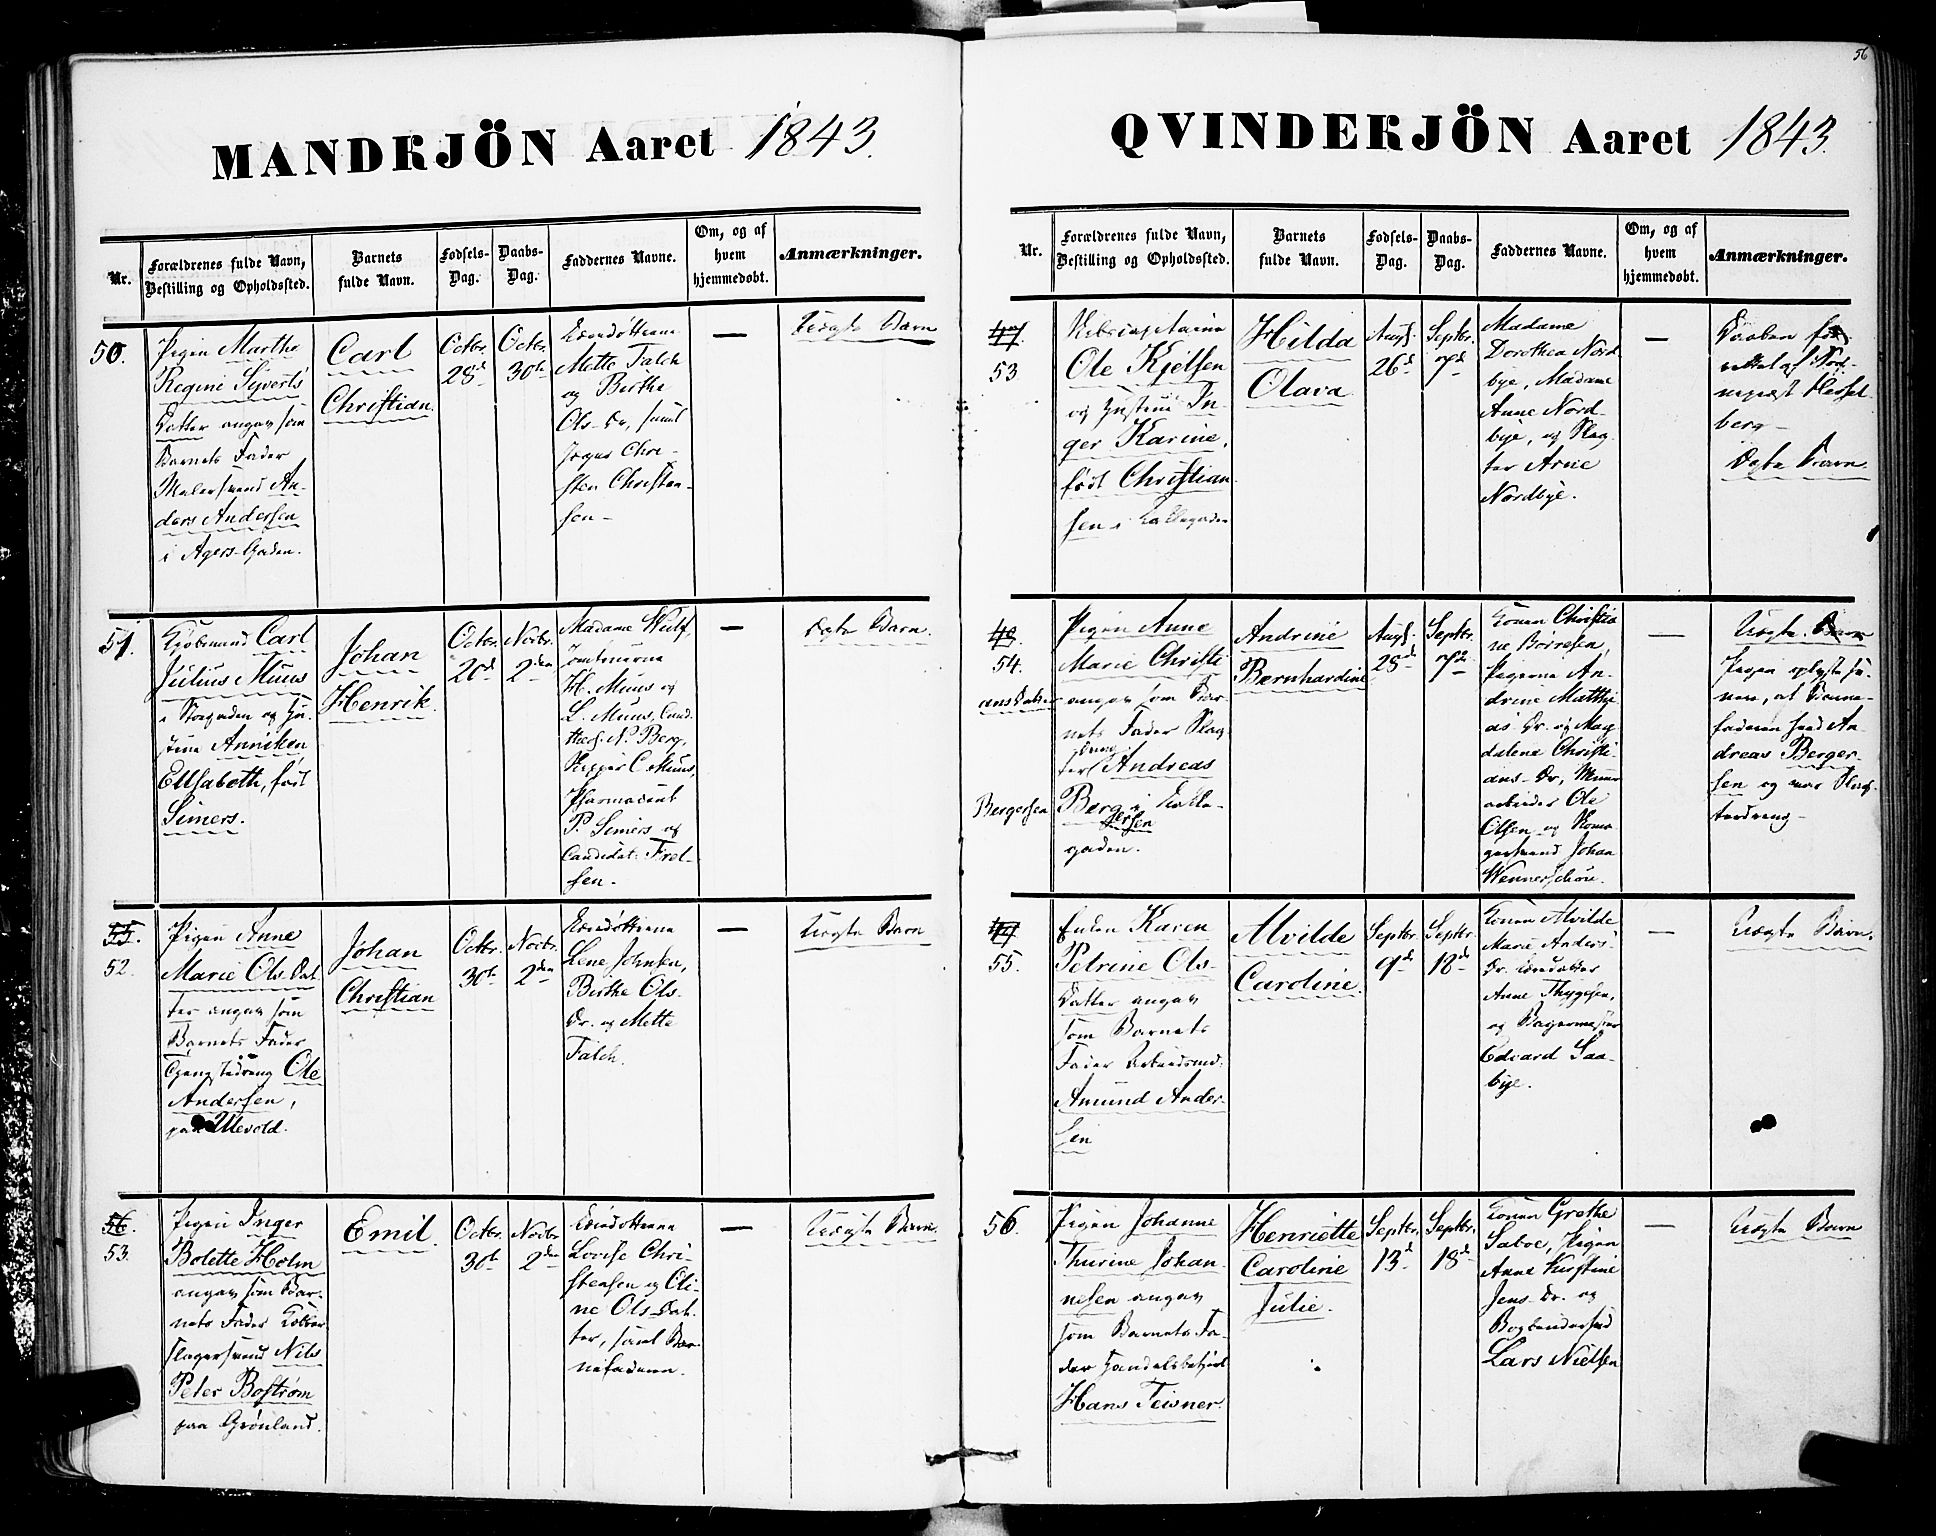 56
MANDKJÖN Aaret 1843.
Nr.
Forældrenes fulde Navn,
Bestilling og Opholdssted.
Barnets
fulde Navn.
Fødsels-
Dag.
Daabs-
Dag.
Faddernes Navne.
Om, og af
hvem
hjemmedøbt.
Anmærkninger.
50.
Pigen Marthe
Regine Syverts
Datter angav som
Barnets Fader
Malersvend An-
ders Andersen
i Agers-Gaden.
Carl
Christian.
Octbr.
28d
Octbr.
30te
Mette Falch
og Birthe
Ols-Dr, samt
Chri-
sten Christen-
sen-
—
Uægte Barn
51.
Kjøbmand Carl
Julius Muus
i Storgaden og Hu-
strue Annichen
Elisabeth, født
Simers.
Johan
Henrik.
Octbr.
20d
Novbr.
2den
Madame Wulf,
Jomfruerne
H. Muus og
L. Muus, Cand.
theol. N. Berg,
Skipper C. Muus,
Pharmaceut
P. Simers og
Candidat
sen-
—
Ægte Barn.
55.
52.
Pigen Anne
Marie Ols Dat-
ter angav som
Barnets Fader
Tjenestedreng Ole
Andersen,
paa Ullevold.
Johan
Christian
Octbr.
30te
Novbr.
2den
Lene Johnsen,
Birthe Ols-
Dr. og Mette
Falch.
—
Uægte Barn
56.
53.
Pigen Inger
Bolette Holm
angav som Bar-
nets Fader Kobber-
slagersvend Nils
Peter Bostrøm
paa Grønland.
Emil.
Octbr.
30te
Novbr.
2den
Lovise Chri-
stensen og Oli-
ne Ols Dat-
ter, samt Bar-
nefaderen.
—
Uægte Barn.
QVINDEKJÖN Aaret 1843.
Nr.
Forældrenes fulde Navn,
Bestilling og Opholdssted.
Barnets
fulde Navn.
Fødsels-
Dag.
Daabs-
Dag.
Faddernes Navne.
Om, og af
hvem
hjemmedøbt.
Anmærkninger.
47
53
Ole Kjelsen
og Hustrue In-
ger Karine,
født Christian-
sen i
Hilda
Olava
Augs.
26d
Septbr.
7d
Madame
Dorothea Nord-
bye, Madame
Anne Nord-
bye, og Slag-
ter Arne
Nordbye.
—
Daaben for-
rettet af
berg-
Ægte Barn.
48.
54.
Pigen Anne
Marie Christi
ans Datter angav som Bar-
nets Fader Slag-
ter dreng Andreas
Bergersen
Berg i
gersen
gaden.
Andrine
Bernhardine
Augs.
28d
Septbr.
7d
Konen Christia-
ne Børresen,
Pigerne An-
drine Matthi-
as Dr. og Mag-
dalene Christi-
ans-Dr,
arbeider Ole
Olsen og
Johan
—
Uægte Barn
Pigen oplyste
nen, at Barne-
faderen hed An-
dreas Berger-
sen og var Slag-
terdreng-
49
55.
Enken Karen
Petrine Ols-
Datter angav
som Barnets
Fader Arbeidsmd.
Amund Ander-
sen
Alvilde
Caroline.
Septbr.
9d
Septbr.
18d
Konen Alvilde
Marie Anders-
Dr.
Anne Thygesen,
og Bagermester
Edvard Saa-
bye.
—
Uægte Barn.
56.
Pigen Johanne
Thurine Johan-
nesen angav
som Barnets Fa-
der Handelsbetjent
Hans Teisner.
Henriette
Caroline
Julie.
Septbr.
13d
Septbr.
18d
Konen Grethe
Saboe, Pigen
Anne Kirstine
Jens-Dr. og
Bogbindersvd
Lars Nielsen
—
Uægte Barn